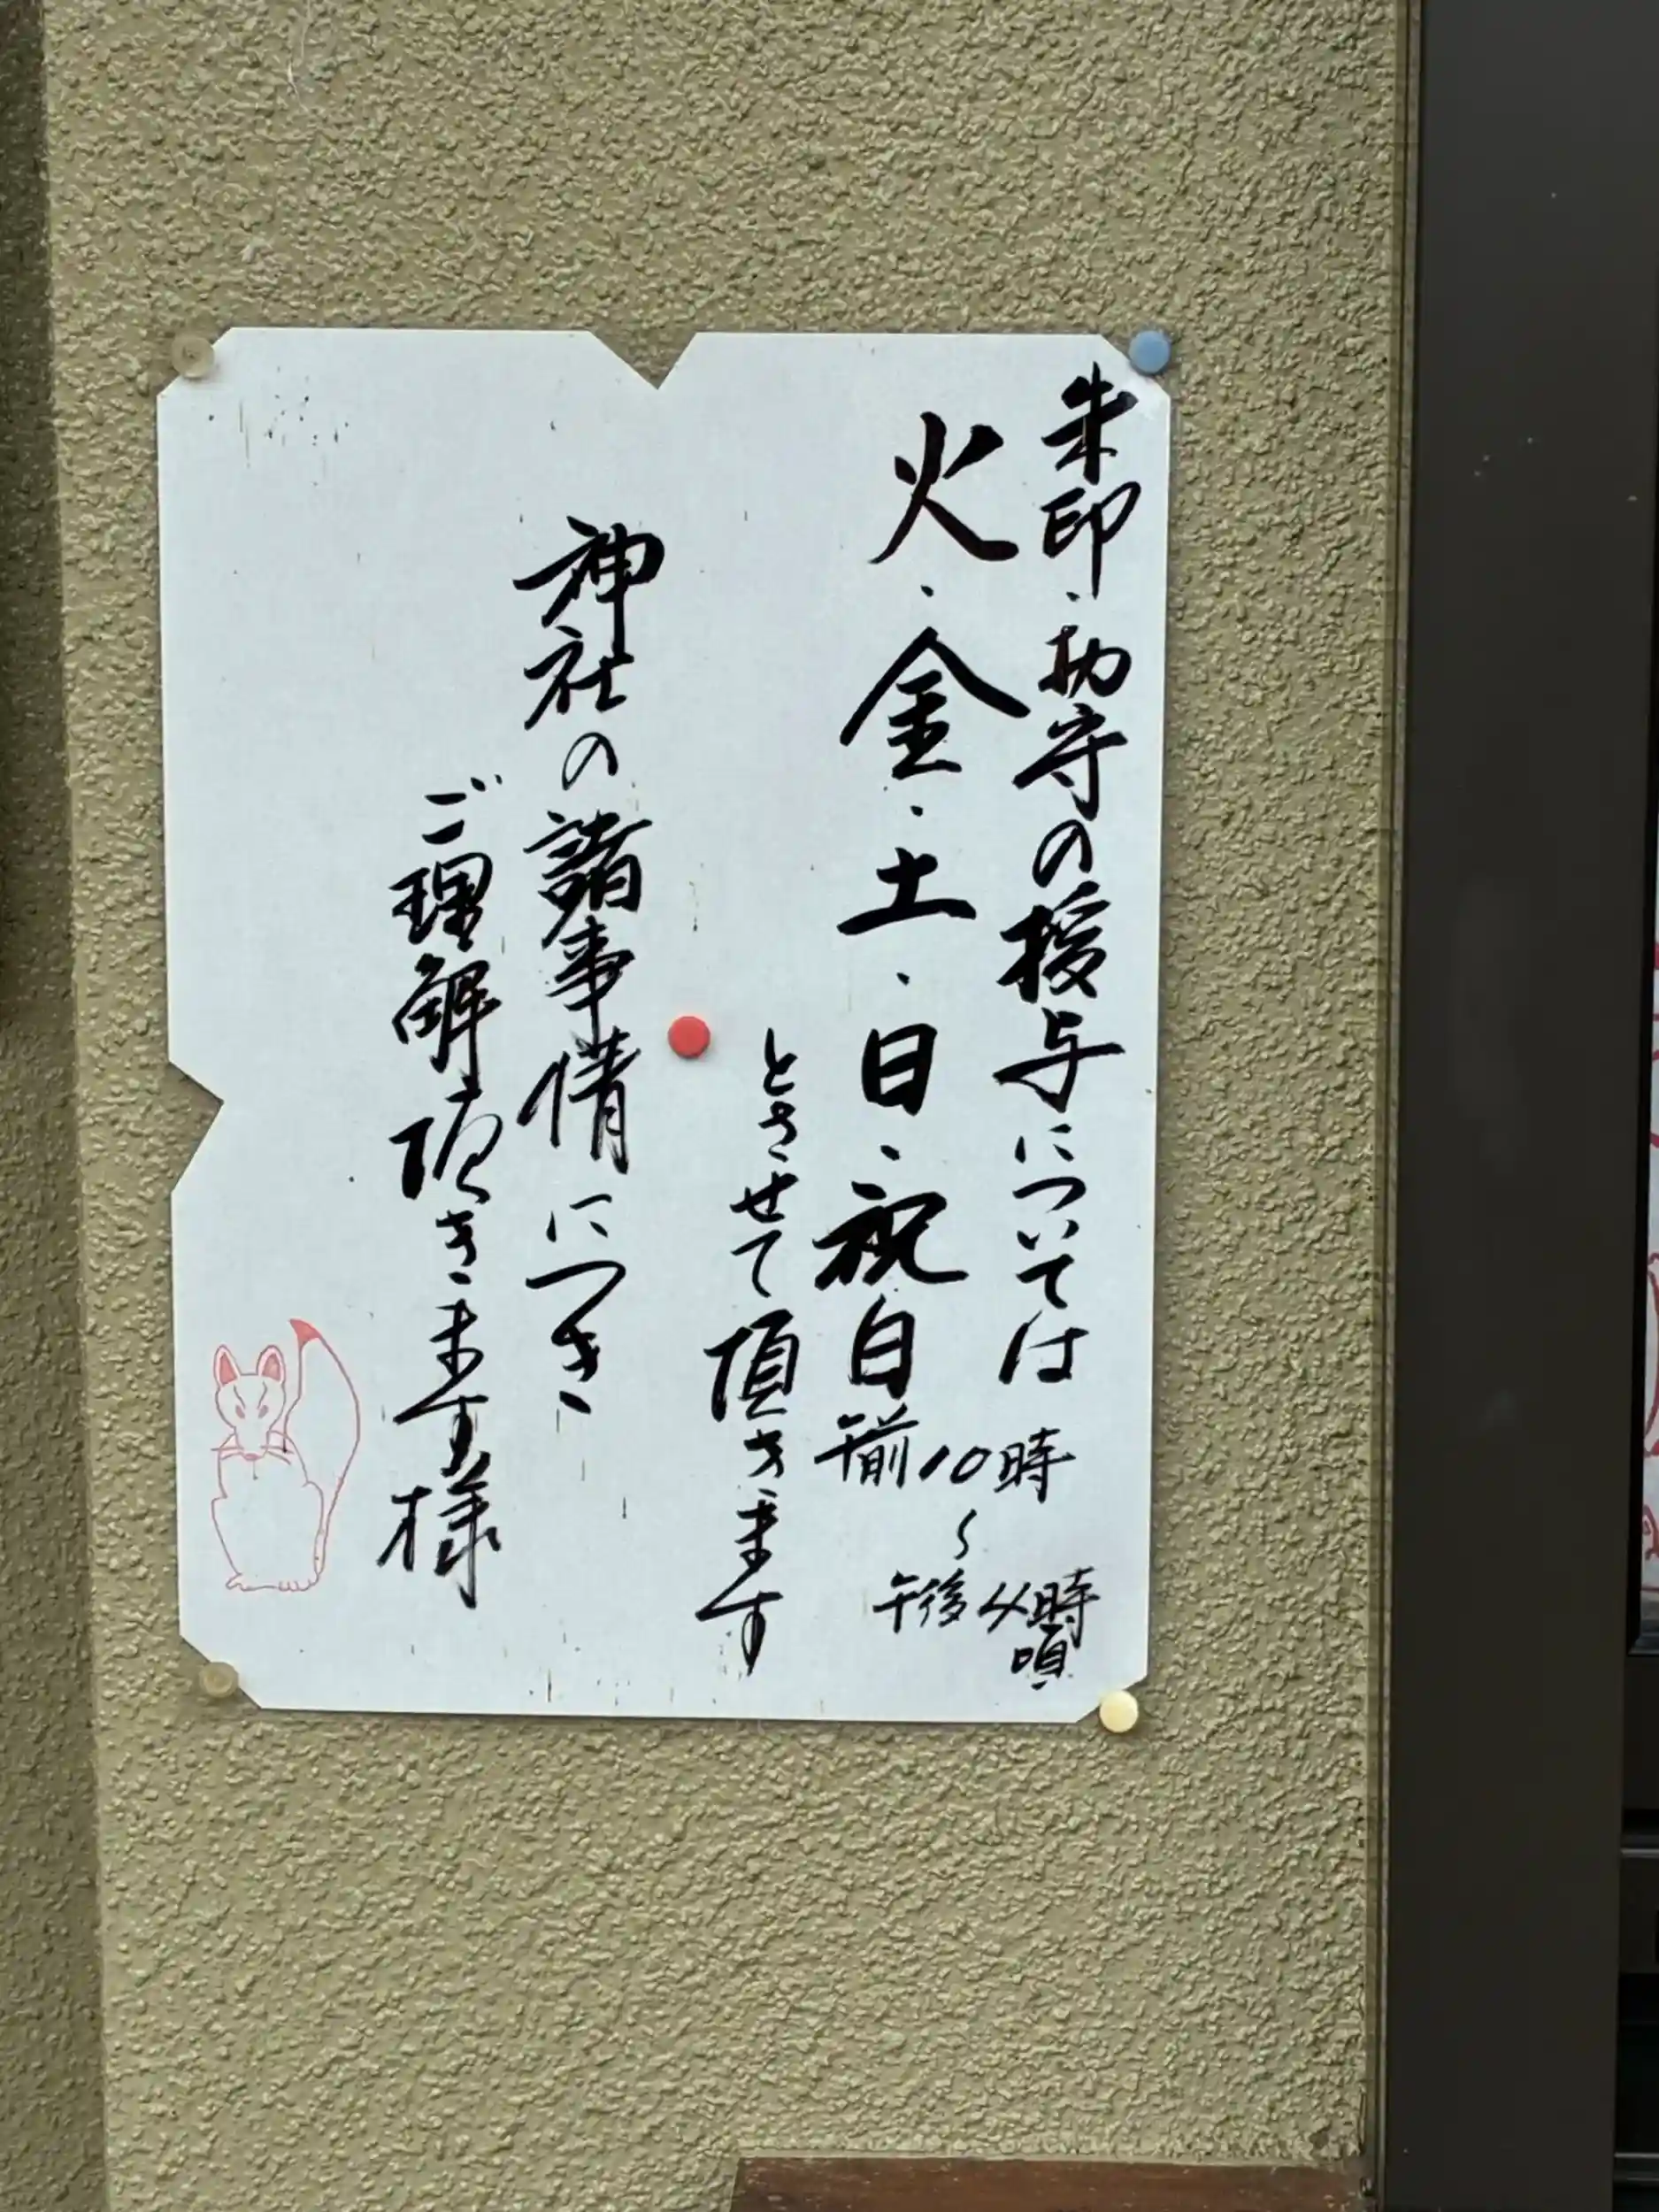 朱印・お守の授与については
火・金・土・日・祝日
午前10時
〜
午後4時
頃
とさせて頂きます
神社の諸事情につき
ご理解頂きます様